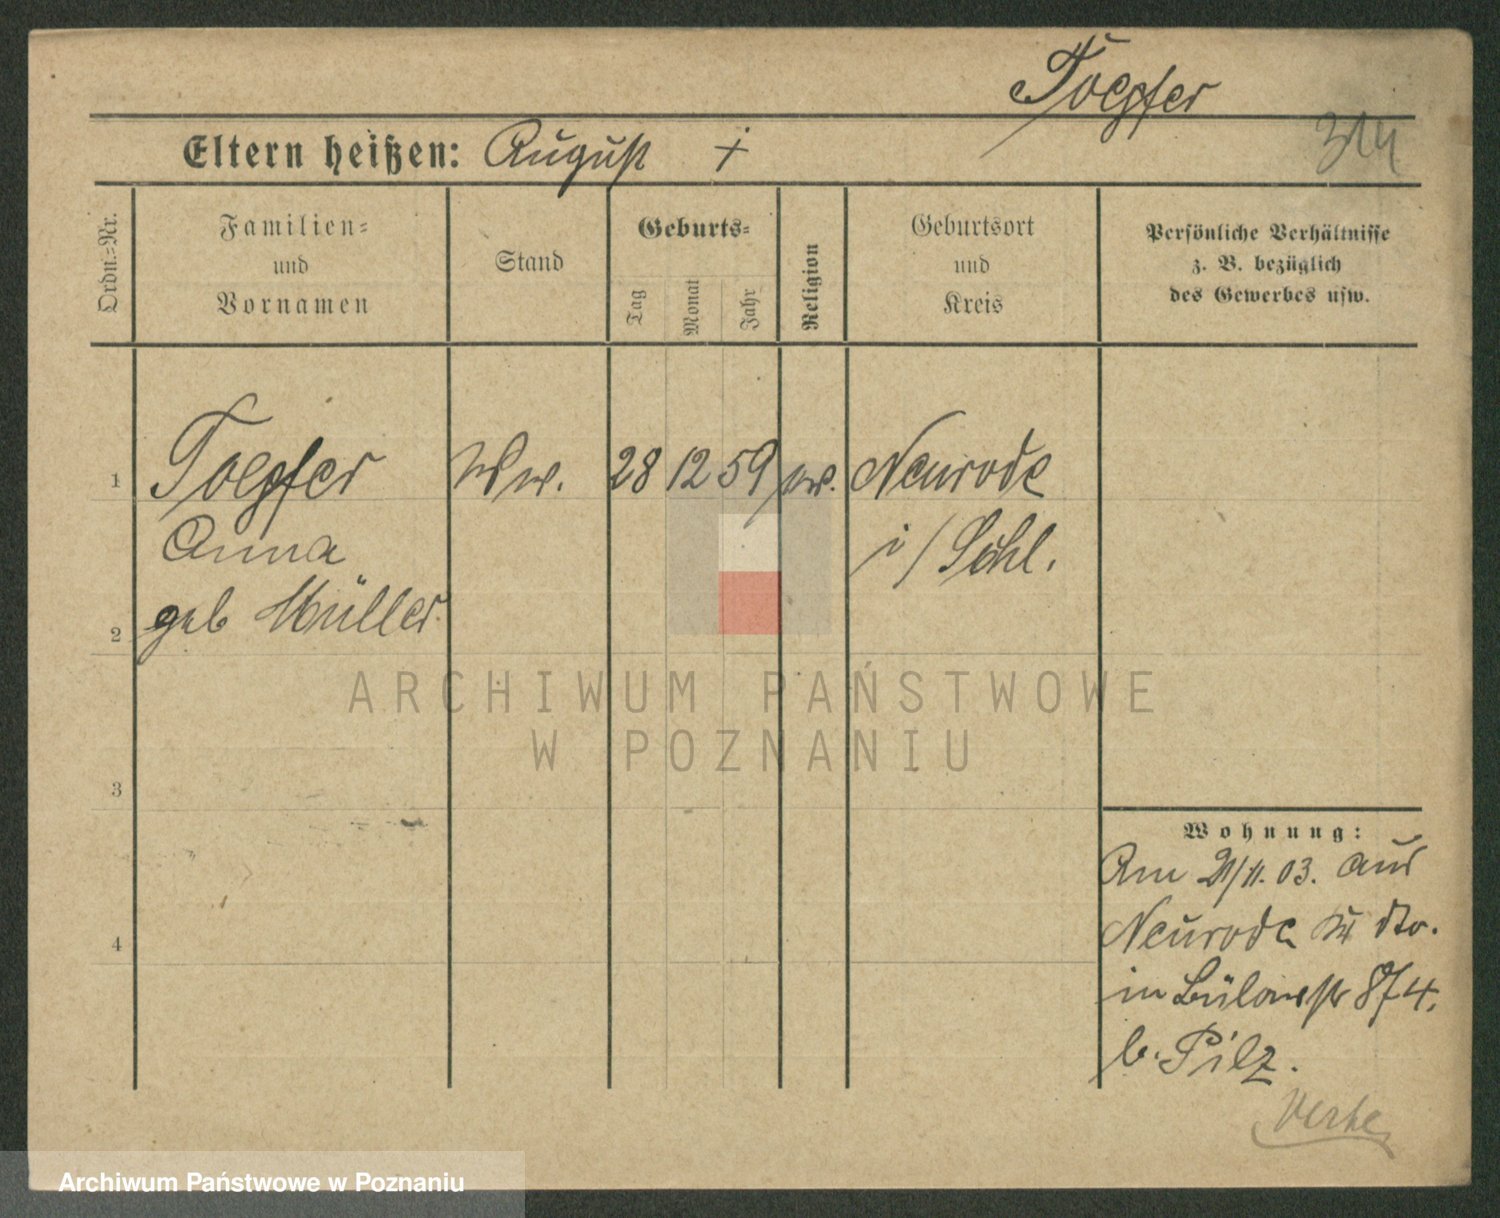 Toepfer
314
Eltern heißen: August +
Ordn.-Nr.
Familien-
und
Vornamen
Stand
Geburts-
Tag
Monat
Jahr
Religion
Geburtsort
und
Kreis
Persönliche Verhältnisse
z. B. bezüglich
des Gewerbes usw.
1 Toepfer Ww. 28 12 59 Neurode
Anna i/Schl.
2 geb Müller
3
4
Wohnung:
Am 21/11. 03. aus
Neurode
in Bülowstr 8/4.
b. Pilz.
ARCHIWUM PAŃSTWOWE
W POZNANIU
Archiwum Państwowe w Poznaniu